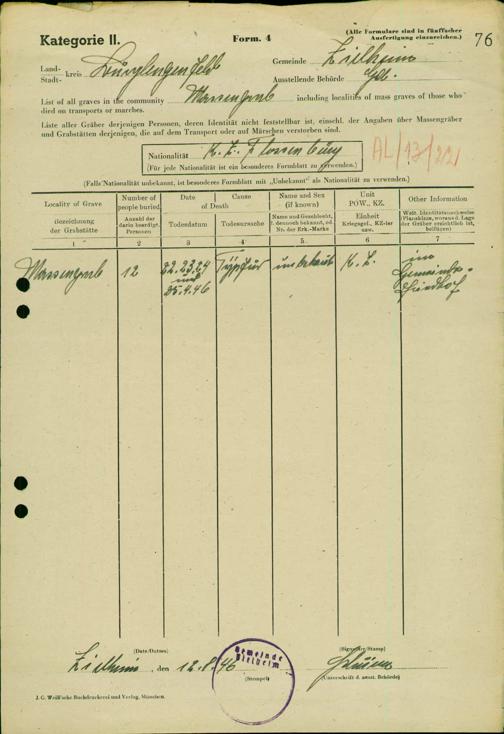 Kategorie II.
Form. 4
(Alle Formulare sind in fünffacher
Ausfertigung einzureichen.)
76
Land-
Stadt- kreis Burglengenfeld
Gemeinde
Ausstellende Behörde
List of all graves in the community Massengrab including localities of mass graves of those who
died on transports or marches.
Liste aller Gräber derjenigen Personen, deren Identität nicht feststellbar ist, einschl. der Angaben über Massengräber
und Grabstätten derjenigen, die auf dem Transport oder auf Märschen verstorben sind.
Nationalität K. Z. Flossenbürg
(Für jede Nationalität ist ein besonderes Formblatt zu verwenden.)
AL/13/221
(Falls Nationalität unbekannt, ist besonderes Formblatt mit „Unbekannt" als Nationalität zu verwenden.)
Locality of Grave
Bezeichnung
der Grabstätte
1
Number of
people buried.
Anzahl der
darin beerdigt.
Personen
2
Date
of Death
Todesdatum
3
Cause
Todesursache
4
Name and Sex
(if known)
Name und Geschlecht,
dennoch bekannt, od.
Nr. der Erk.-Marke
5.
Unit
POW., KZ.
Einheit
Kriegsgef., KZ-ler
usw.
6
Other Information
Weit. Identitätsnachweise
Planskizze, woraus d. Lage
der Gräber ersichtlich ist,
beifügen)
7
Massengrab
12
22. 23. 24
und
25.4.46
Typhus
unbekannt
K. Z.
im
Gemeinde-
friedhof
(Date/Datum)
, den 12.8.46
Gemeinde
(Stempel)
(Signature/Stamp)
(Unterschrift d. ausst. Behörde)
J. G. Weiß'sche Buchdruckerei und Verlag, München.